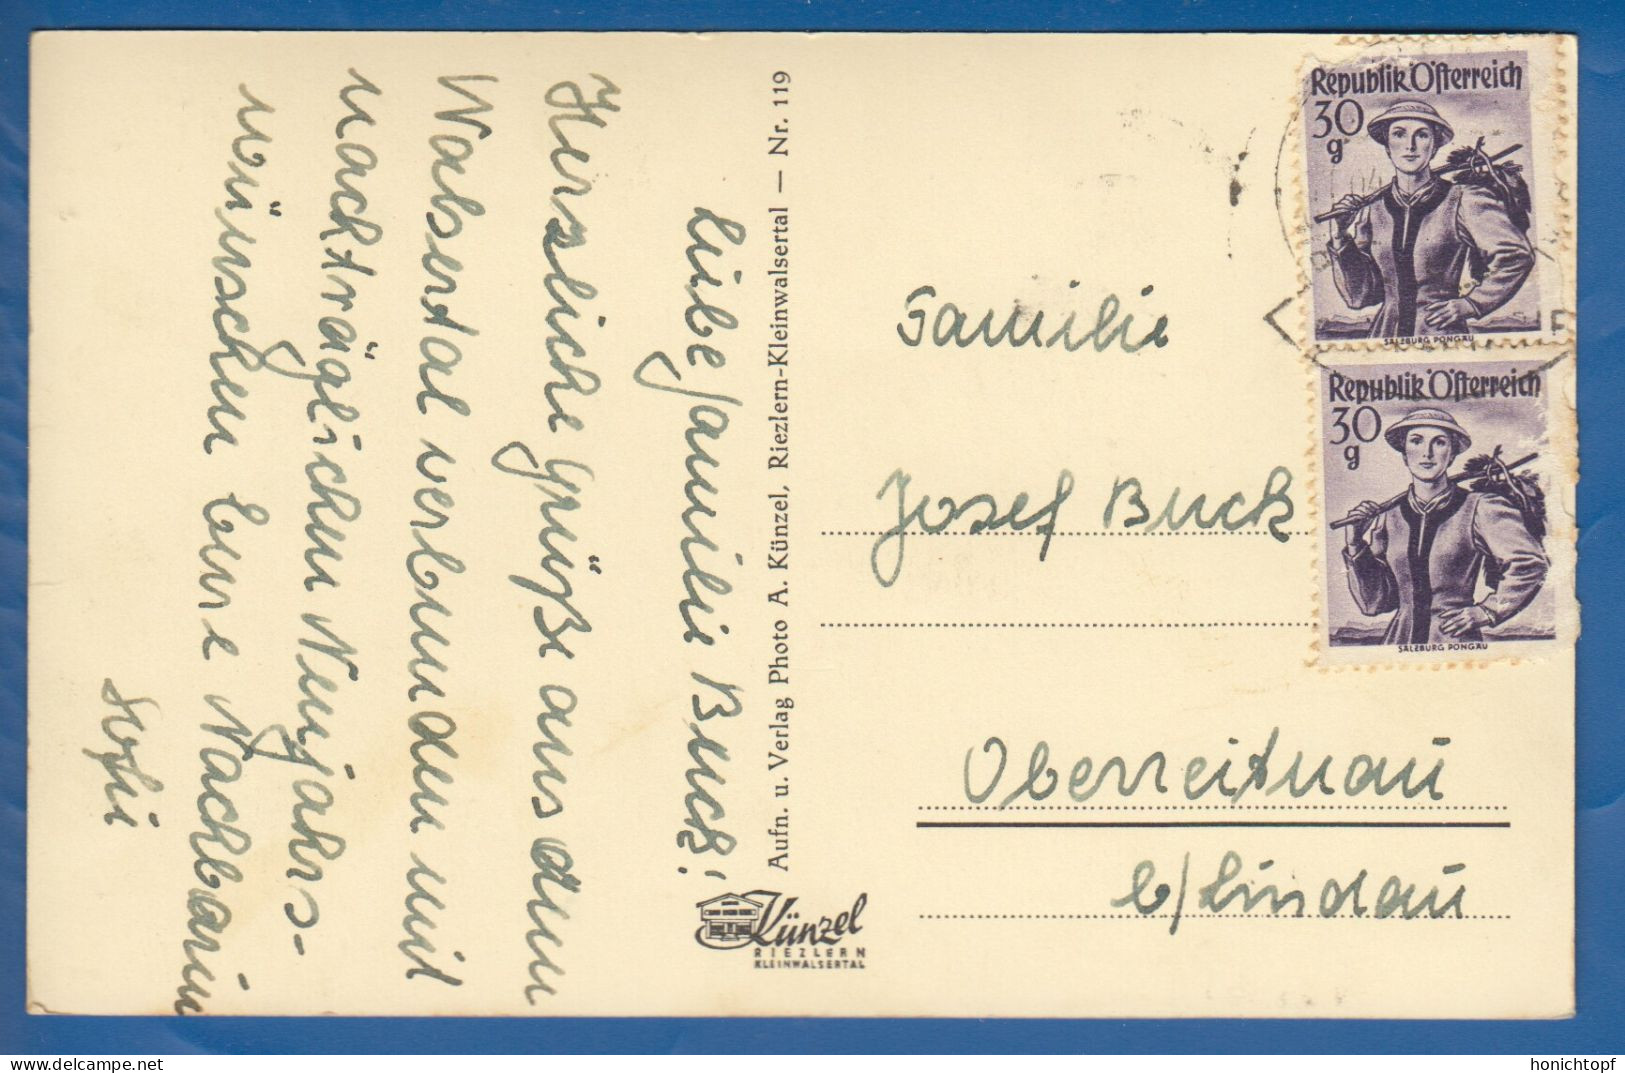 Liebe Familie Buck!
Herzliche Grüße aus dem
Walsertal verbunden mit
nachträglichen Neujahrs-
wünschen Eure Nachbarin
Sofie
Aufn. u. Verlag Photo A. Künzel, Riezlern-Kleinwalsertal — Nr. 119
Künzel
RIEZLERN
KLEINWALSERTAL
Republik Österreich
30
g
SALZBURG PONGAU
Republik Österreich
30
g
SALZBURG PONGAU
Familie
Josef Buck
Oberreitnau
b/Lindau
delcampe.net
honichtopf